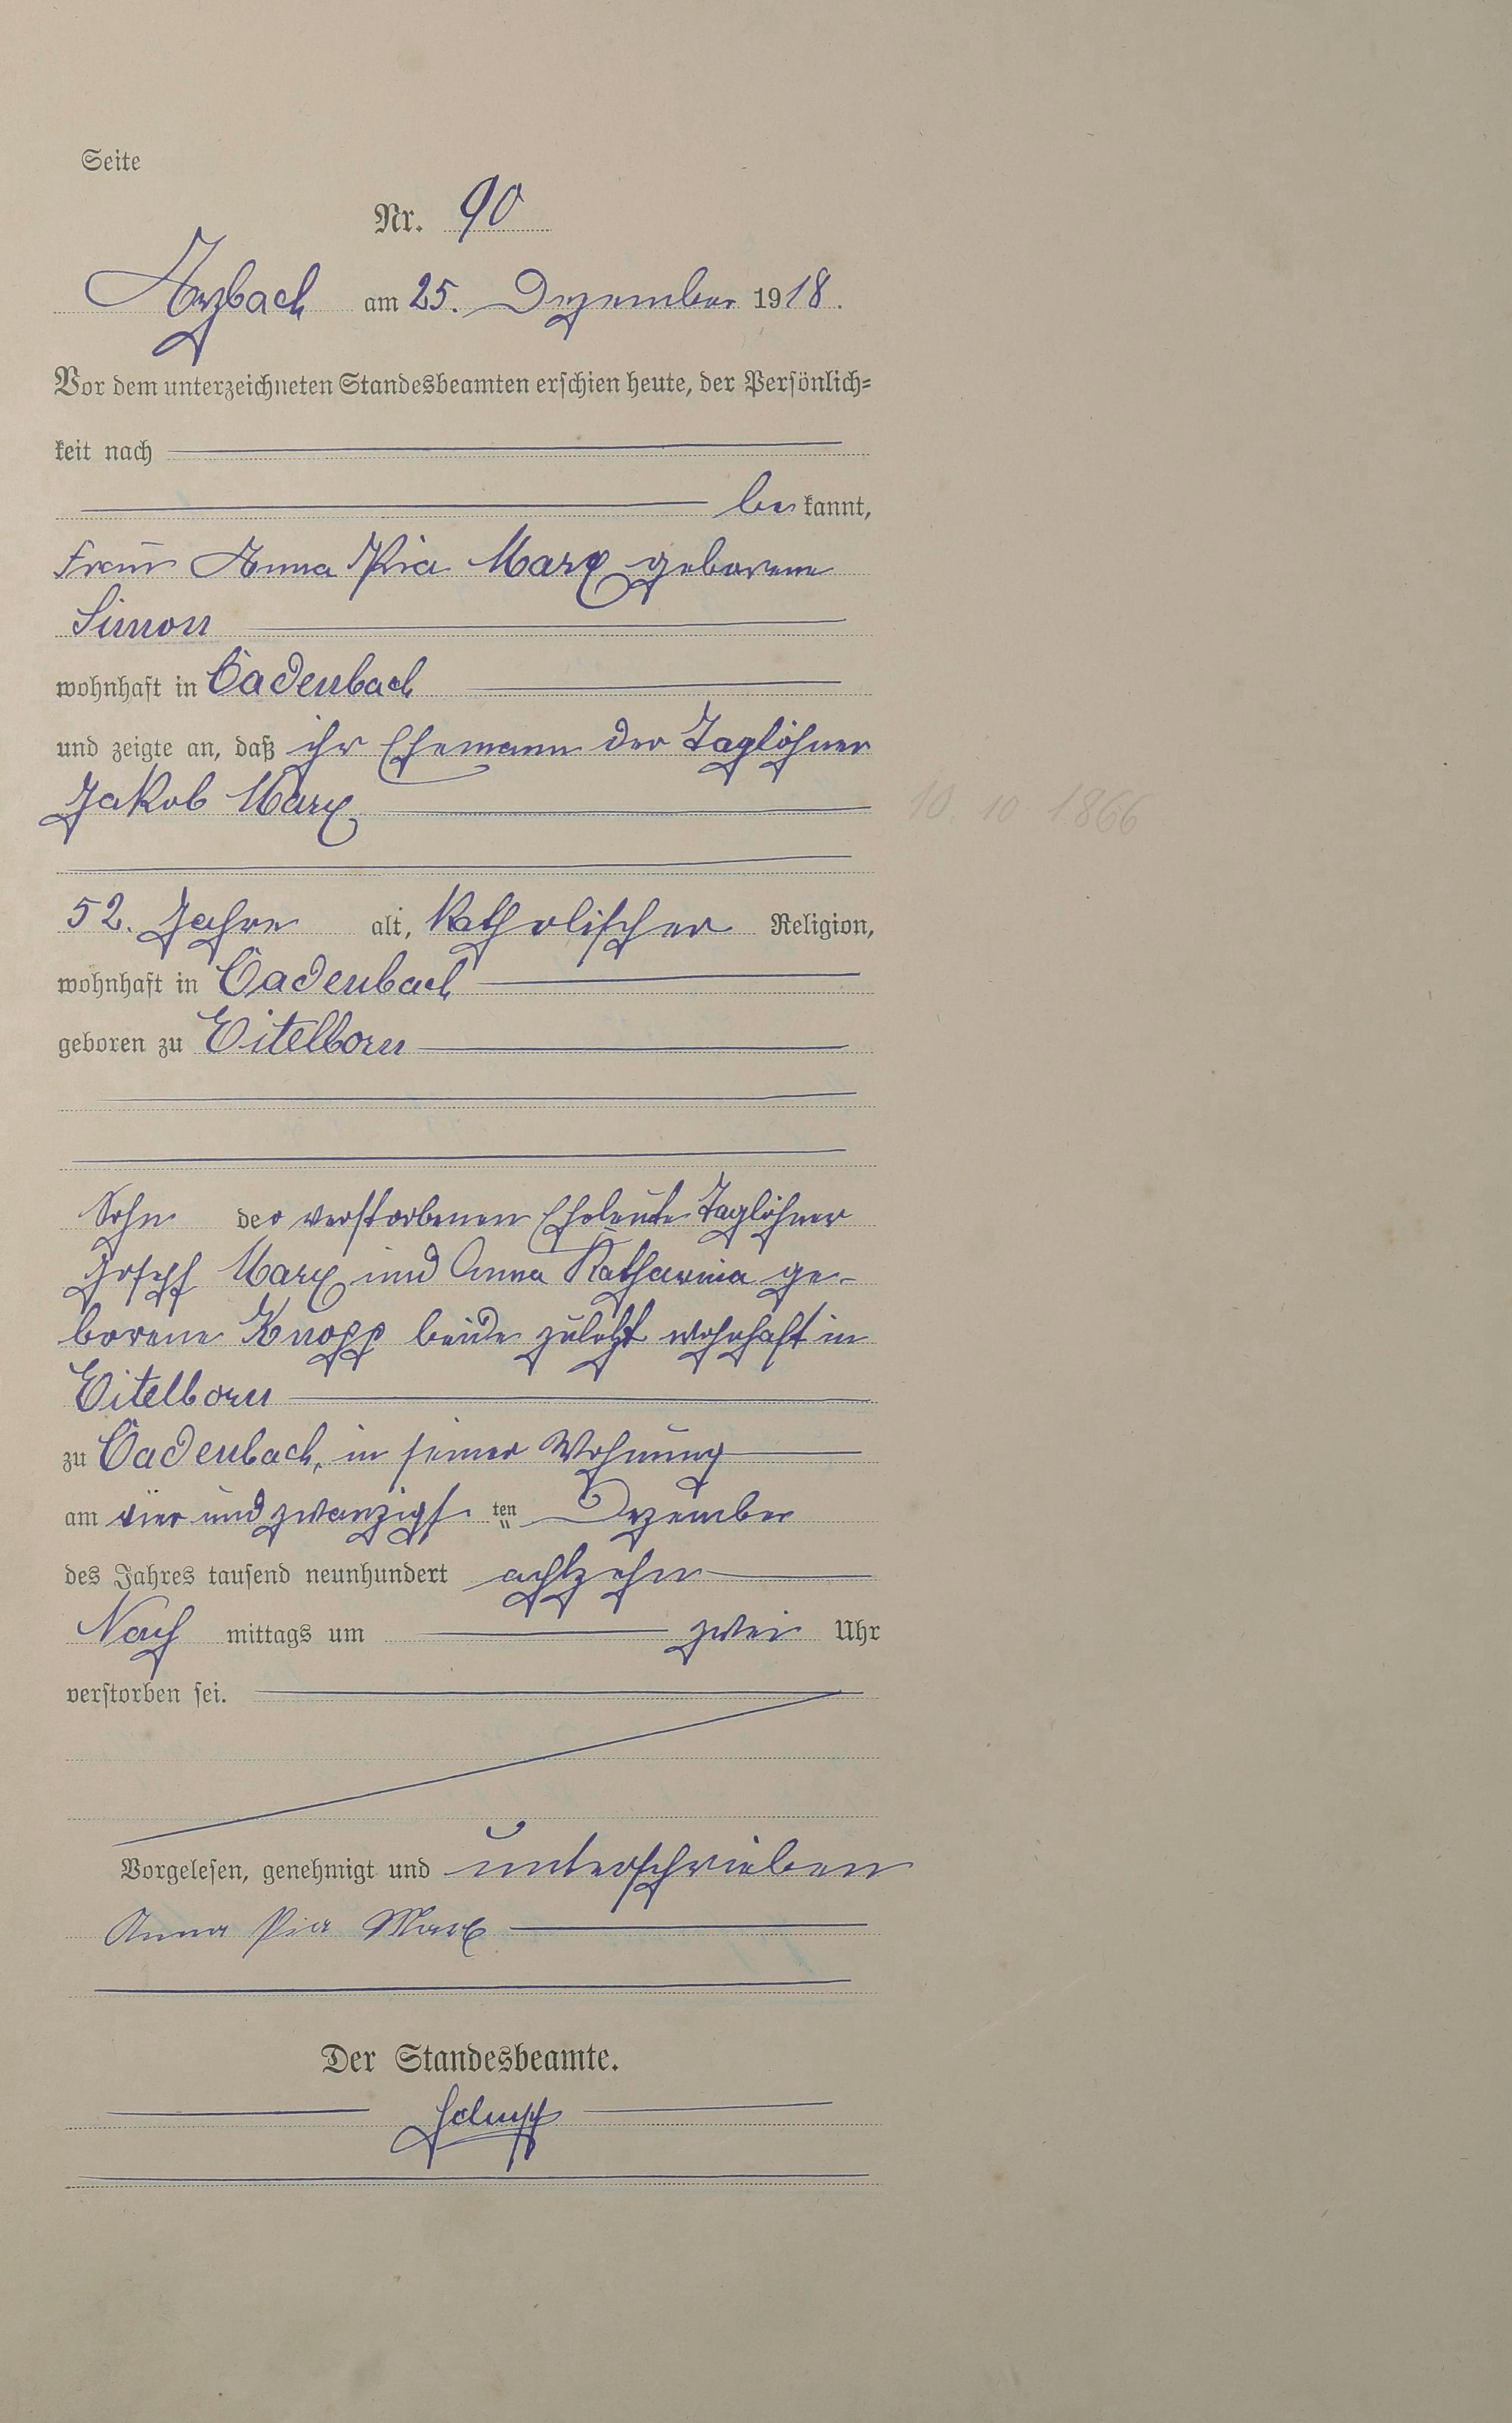 Seite
Nr. 90
Arzbach am 25. Dezember 1918.
Vor dem unterzeichneten Standesbeamten erschien heute, der Persönlich-
keit nach
be kannt,
Frau Anna Pia Marx geborene
Simon
wohnhaft in Cadenbach
und zeigte an, daß ihr Ehemann der Taglöhner
Jakob Marx
10. 10 1866
52. Jahre alt, katholischer Religion,
wohnhaft in Cadenbach
geboren zu Eitelborn
Sohn der verstorbenen Eheleute Taglöhner
Joseph Marx und Anna Katharina ge-
borene Knopp beide zuletzt wohnhaft in
Eitelborn
zu Cadenbach, in seiner Wohnung
am vier und zwanzigsten Dezember
des Jahres tausend neunhundert achtzehn
Nach mittags um zwei Uhr
verstorben sei.
Vorgelesen, genehmigt und unterschrieben
Anna Pia Marx
Der Standesbeamte.